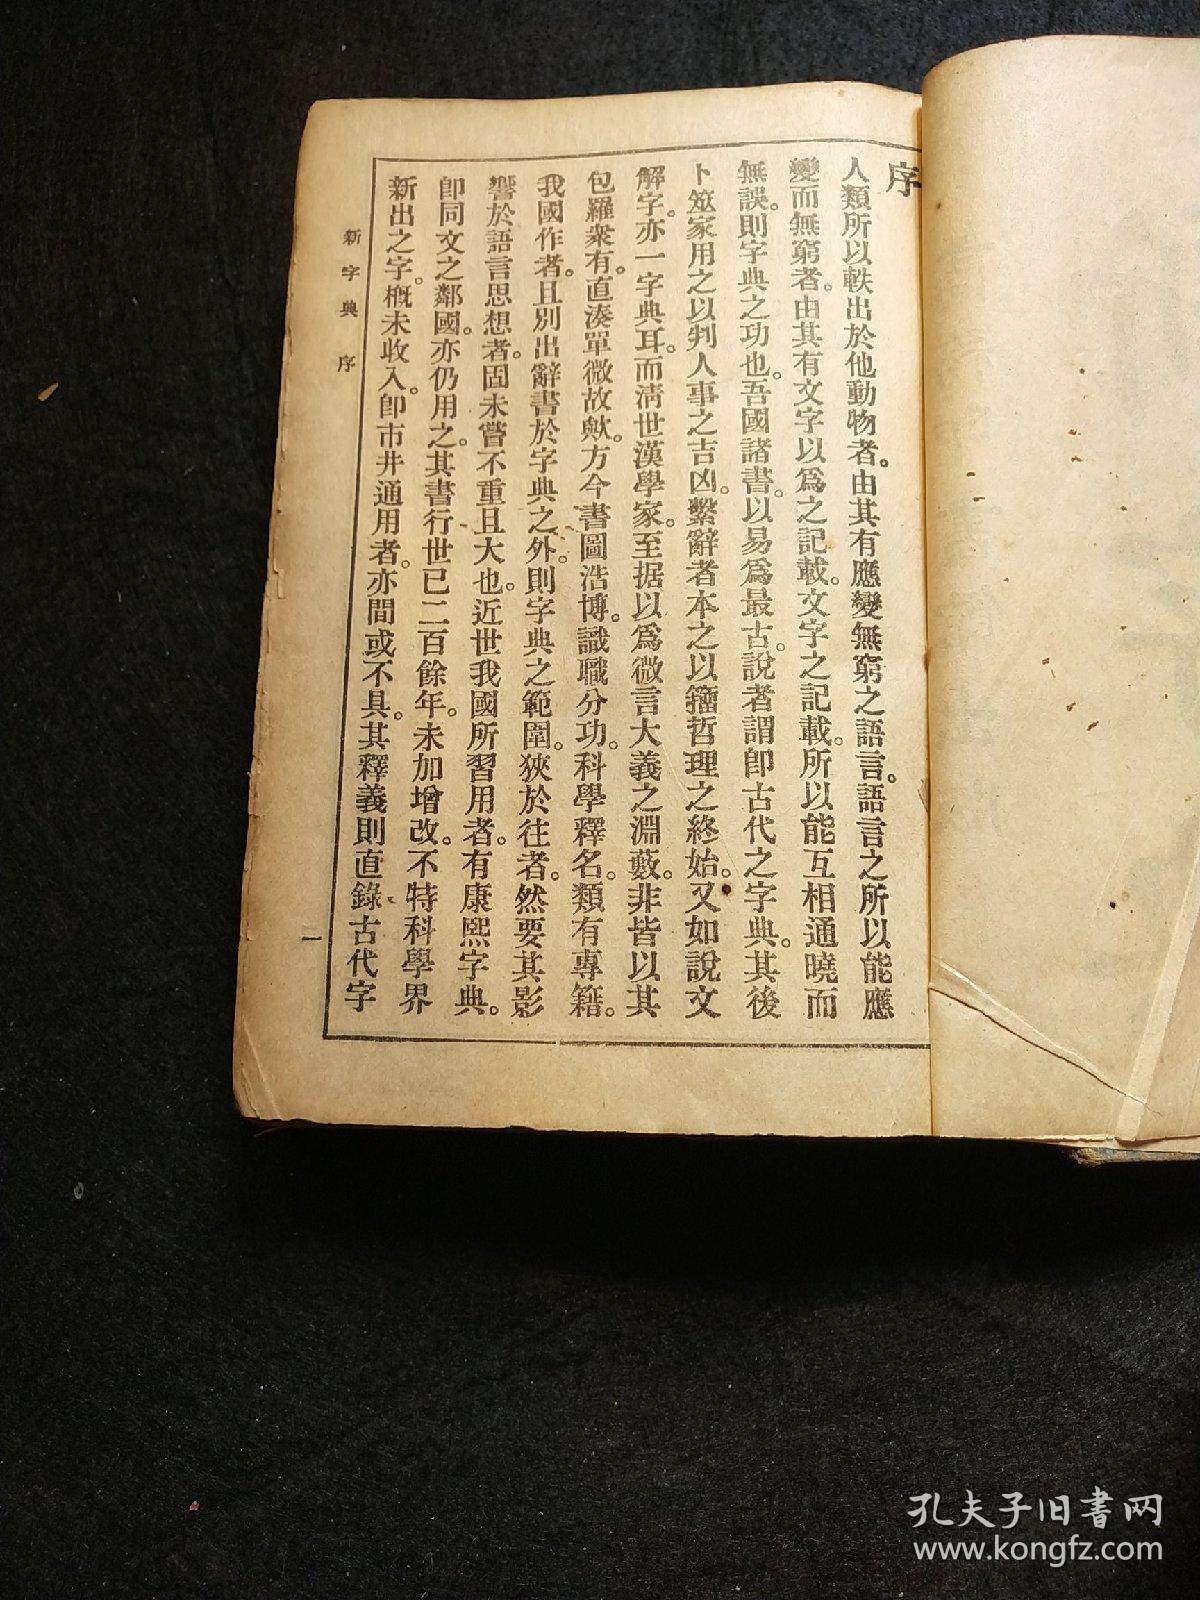 序
人類所以軼出於他動物者。由其有應變無窮之語言。語言之所以能應
變而無窮者。由其有文字以爲之記載。文字之記載。所以能互相通曉而
無誤。則字典之功也。吾國諸書。以易爲最古。說者謂卽古代之字典。其後
卜筮家用之以判人事之吉凶。繫辭者本之以籀哲理之終始。又如說文
解字。亦一字典耳。而清世漢學家。至据以爲微言大義之淵藪。非皆以其
包羅衆有。直湊單微故歟。方今書圖浩博。識職分功。科學釋名。類有專籍。
我國作者。且別出辭書於字典之外。則字典之範圍。狹於往者。然要其影
響於語言思想者。固未嘗不重且大也。近世我國所習用者。有康熙字典。
卽同文之鄰國。亦仍用之。其書行世已二百餘年。未加增改。不特科學界
新出之字。槪未收入。卽市井通用者。亦間或不具。其釋義則直錄古代字
新字典 序
一
孔夫子旧书网
www.kongfz.com